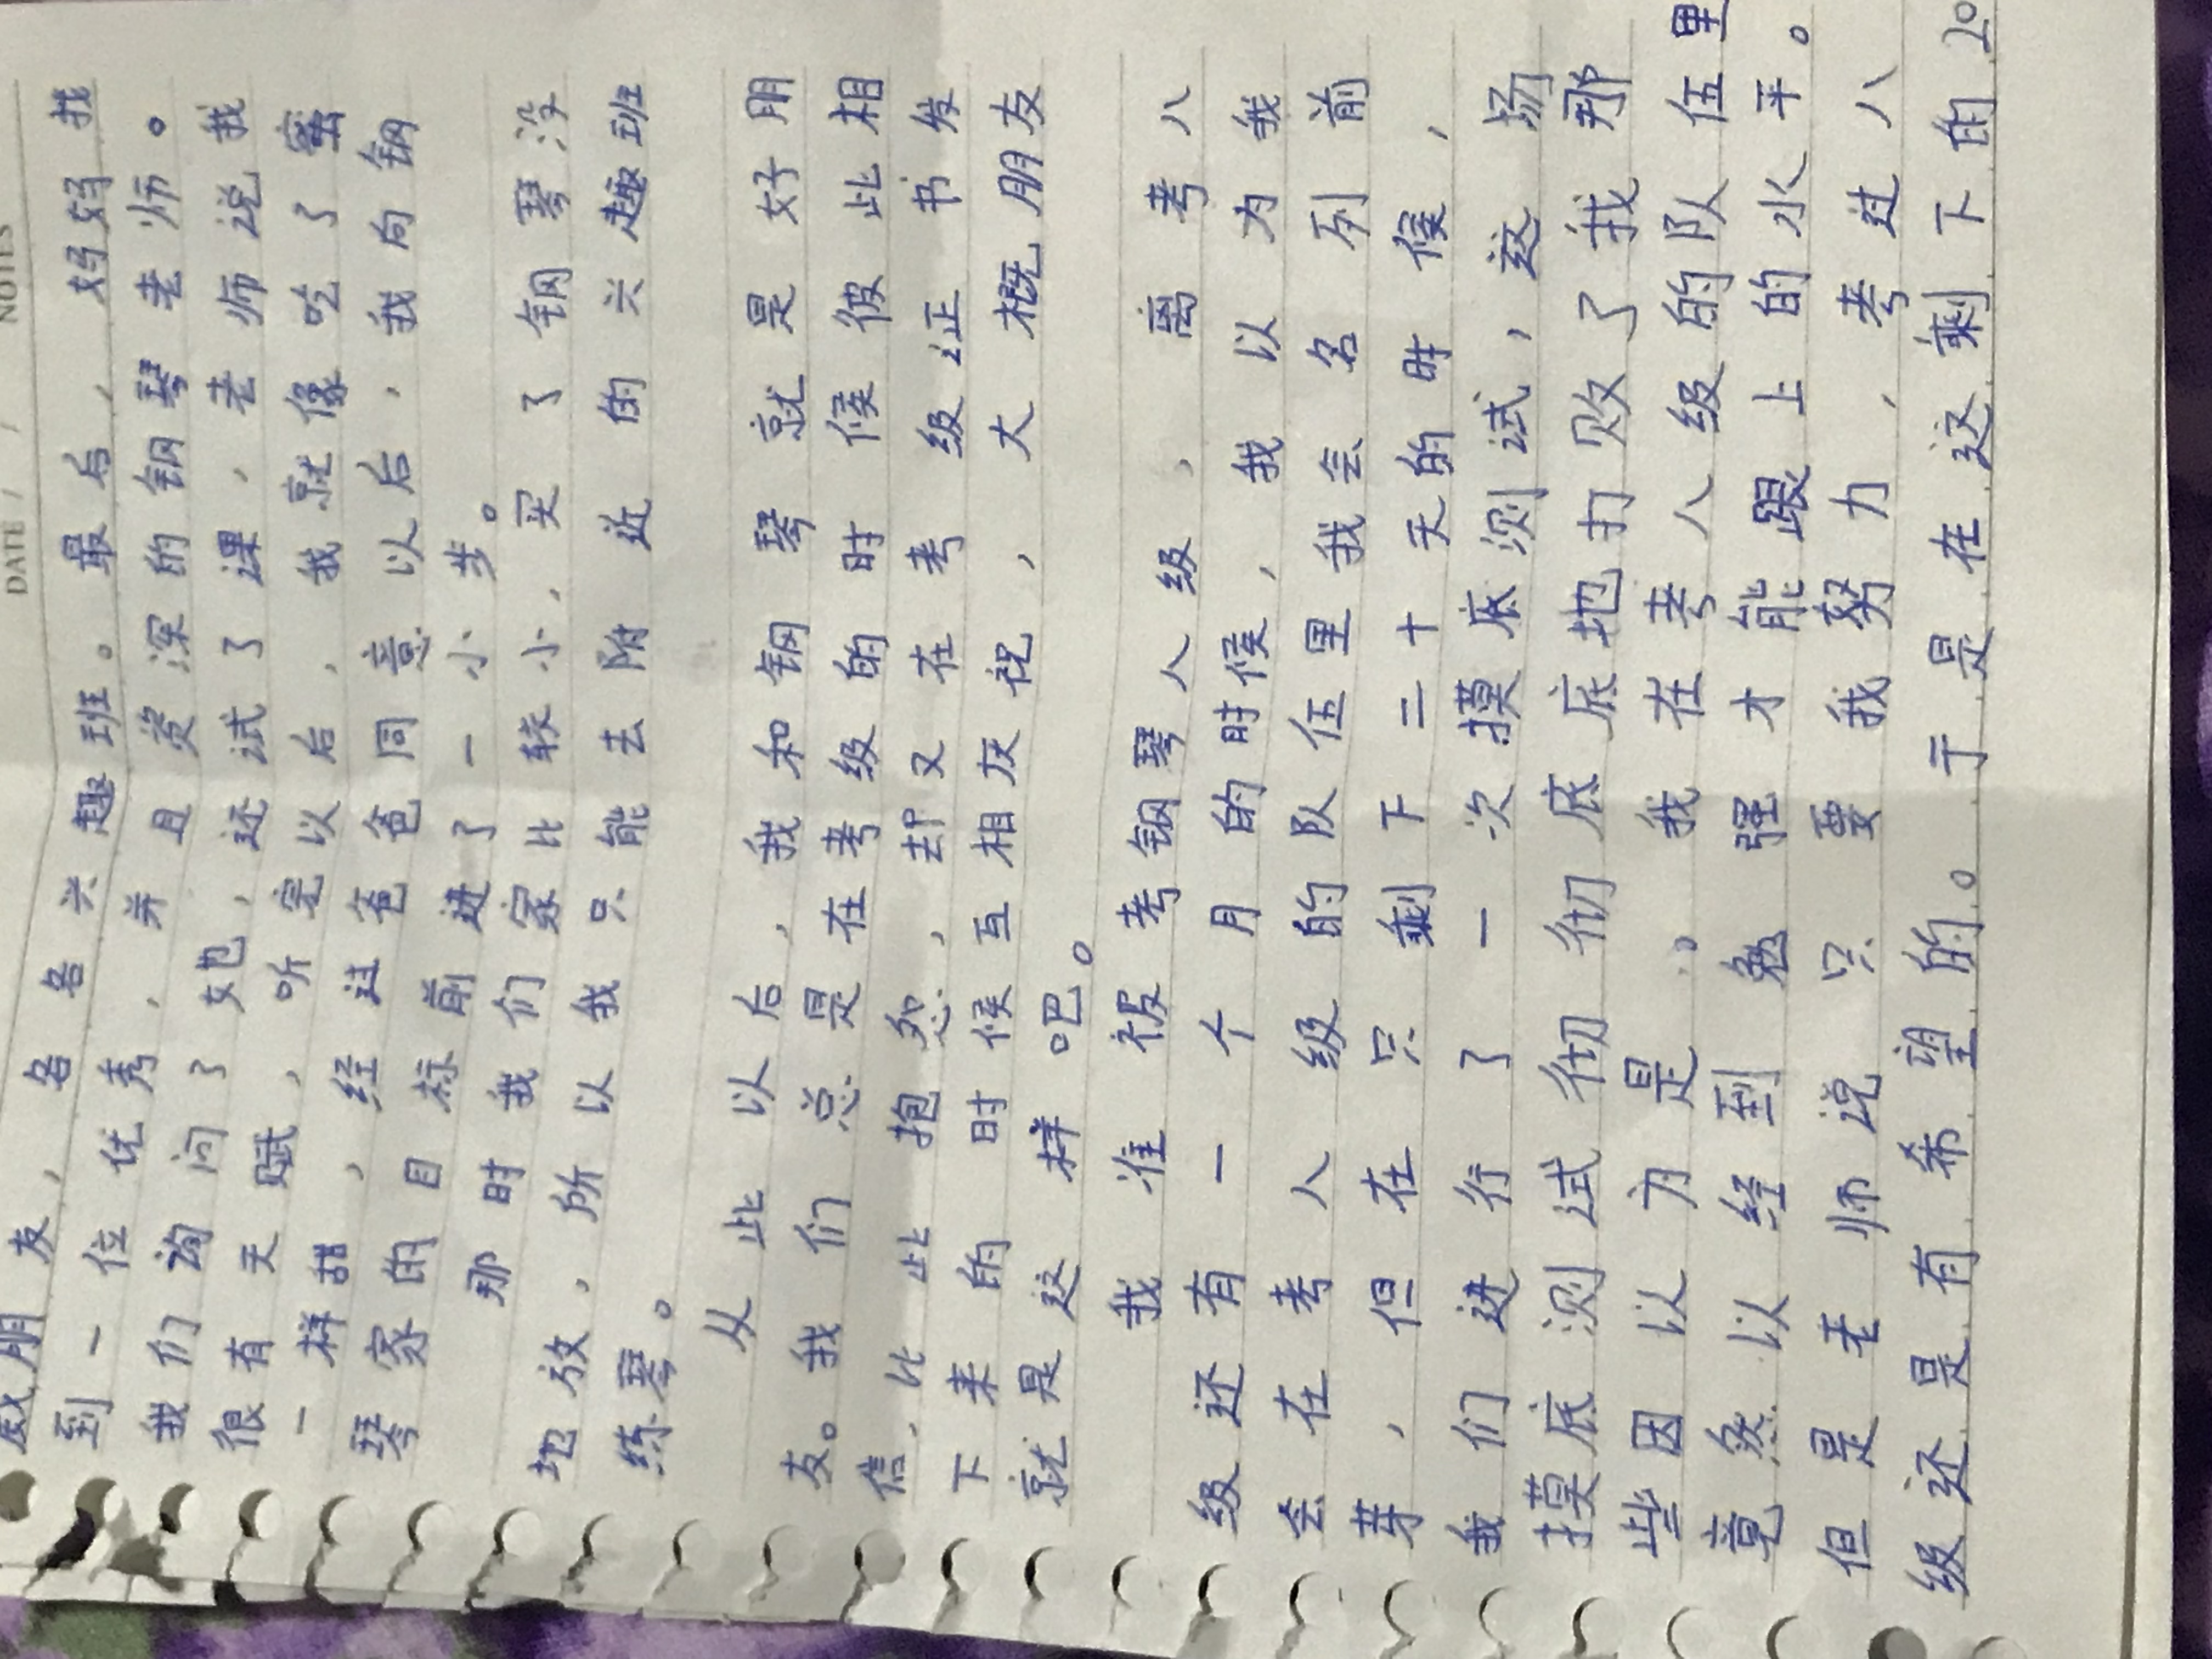 DATE / / NOTES
戚朋友,各名兴趣班。最后,妈妈找
到一位优秀,并且资深的钢琴老师。
我们询问了她,还试了课,老师说我
很有天赋,听完以后,我就像吃了蜜
一样甜,经过爸爸同意以后,我向钢
琴家的目标前进了一小步。
那时我们家比较小,买了钢琴没
地放,所以我只能去附近的兴趣班
练琴。
从此以后,我和钢琴就是好朋
友。我们总是在考级的时候彼此相
信,比此抱怨,却又在考级证书发
下来的时候互相庆祝,大概朋友
就是这样吧。
我准被考钢琴八级,离考八
级还有一个月的时候,我以为我
会在考八级的队伍里我会名列前
芽,但在只剩下二十天的时候,
我们进行了一次摸底测试,这场
摸底测试彻彻底底地打败了我那
些因以力是。我在考八级的队伍里
竟然以经到勉强才能跟上的水平。
但是老师说只要我努力,考过八
级还是有希望的。于是在这剩下的20